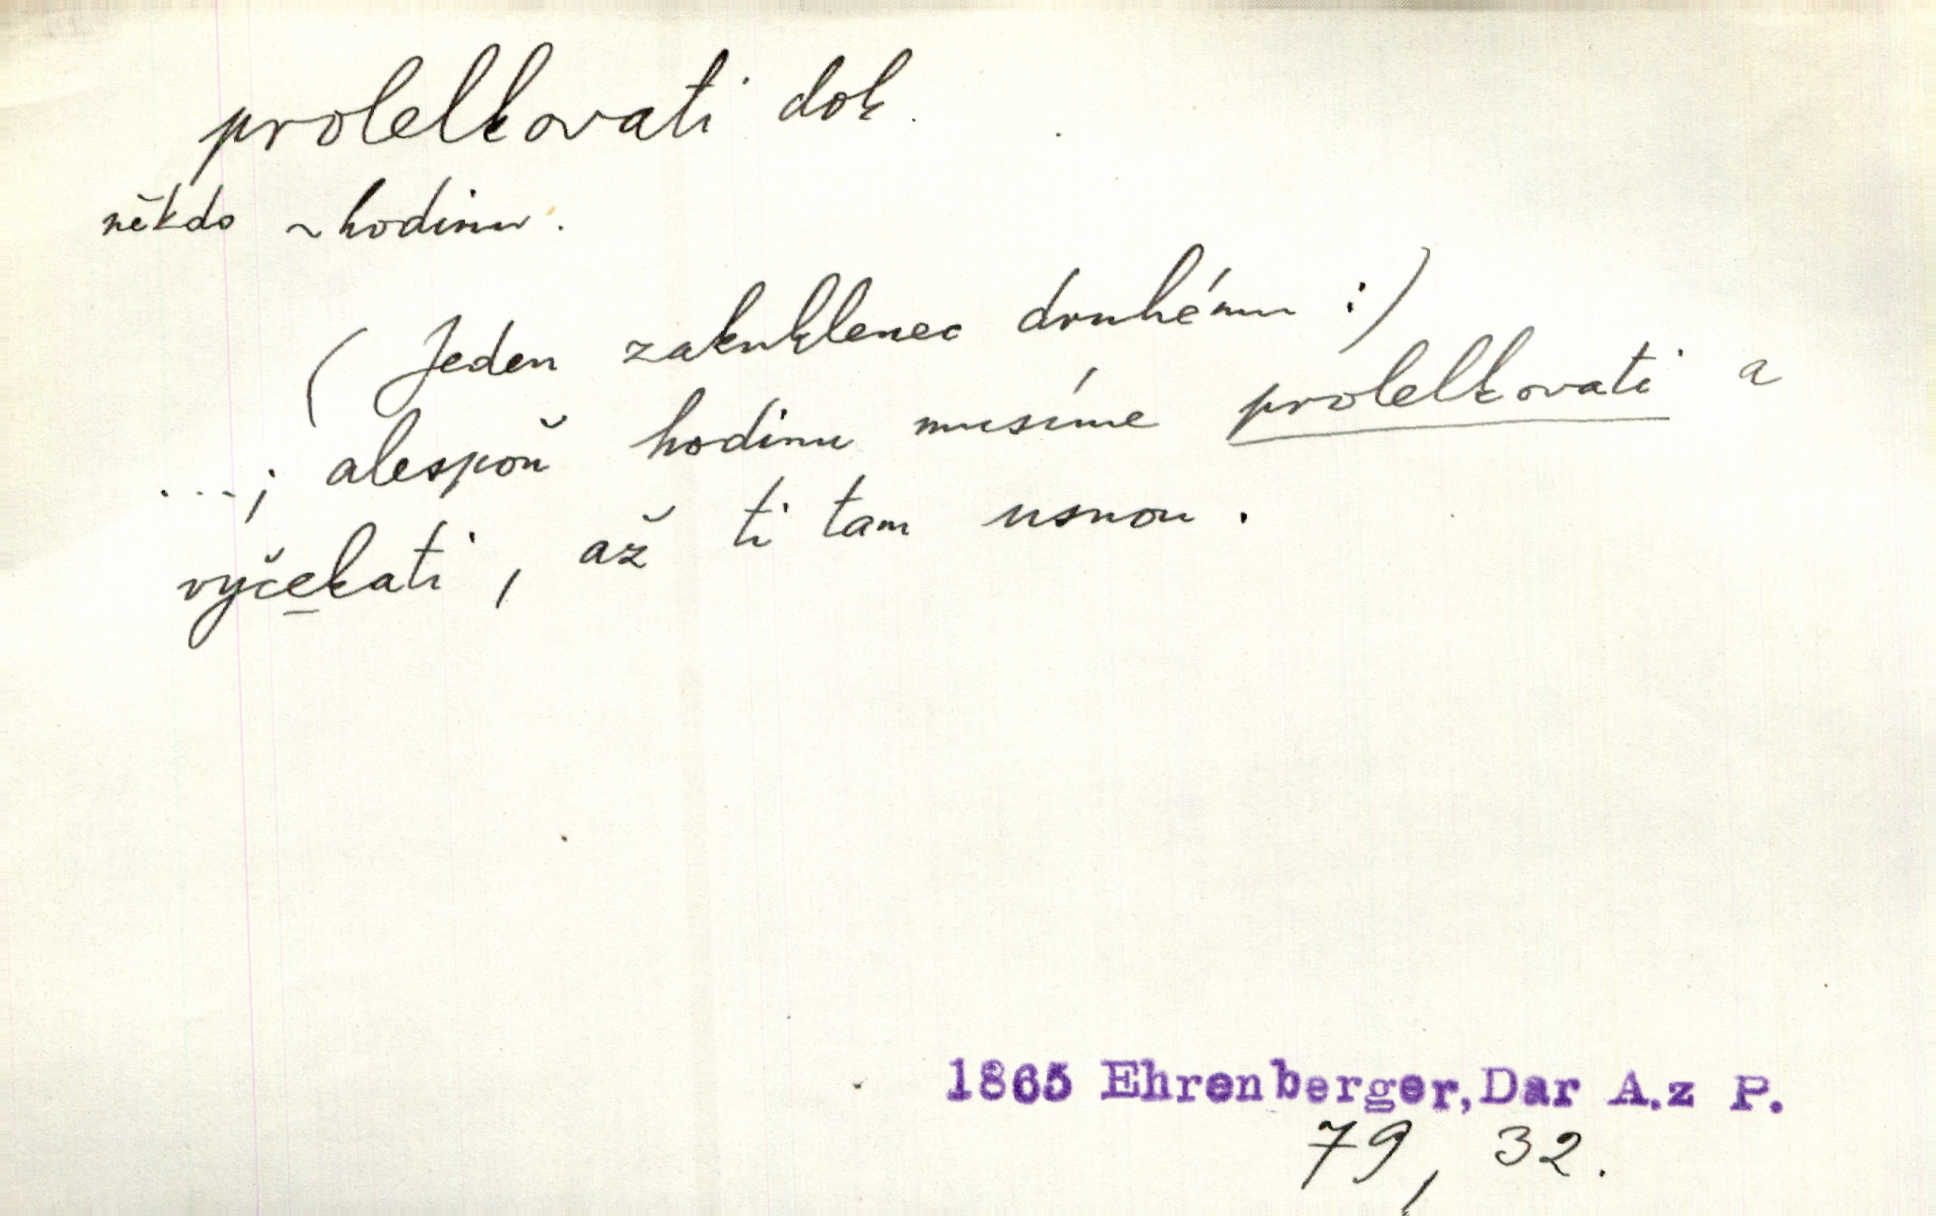 prolelkovati dok.
někdo ~ hodinu.
(Jeden zakuklenec druhému:)
...; alespoň hodinu musíme prolelkovati a
vyčekati, až ti tam usnou.
1865 Ehrenberger, Dar A. z P.
79, 32.